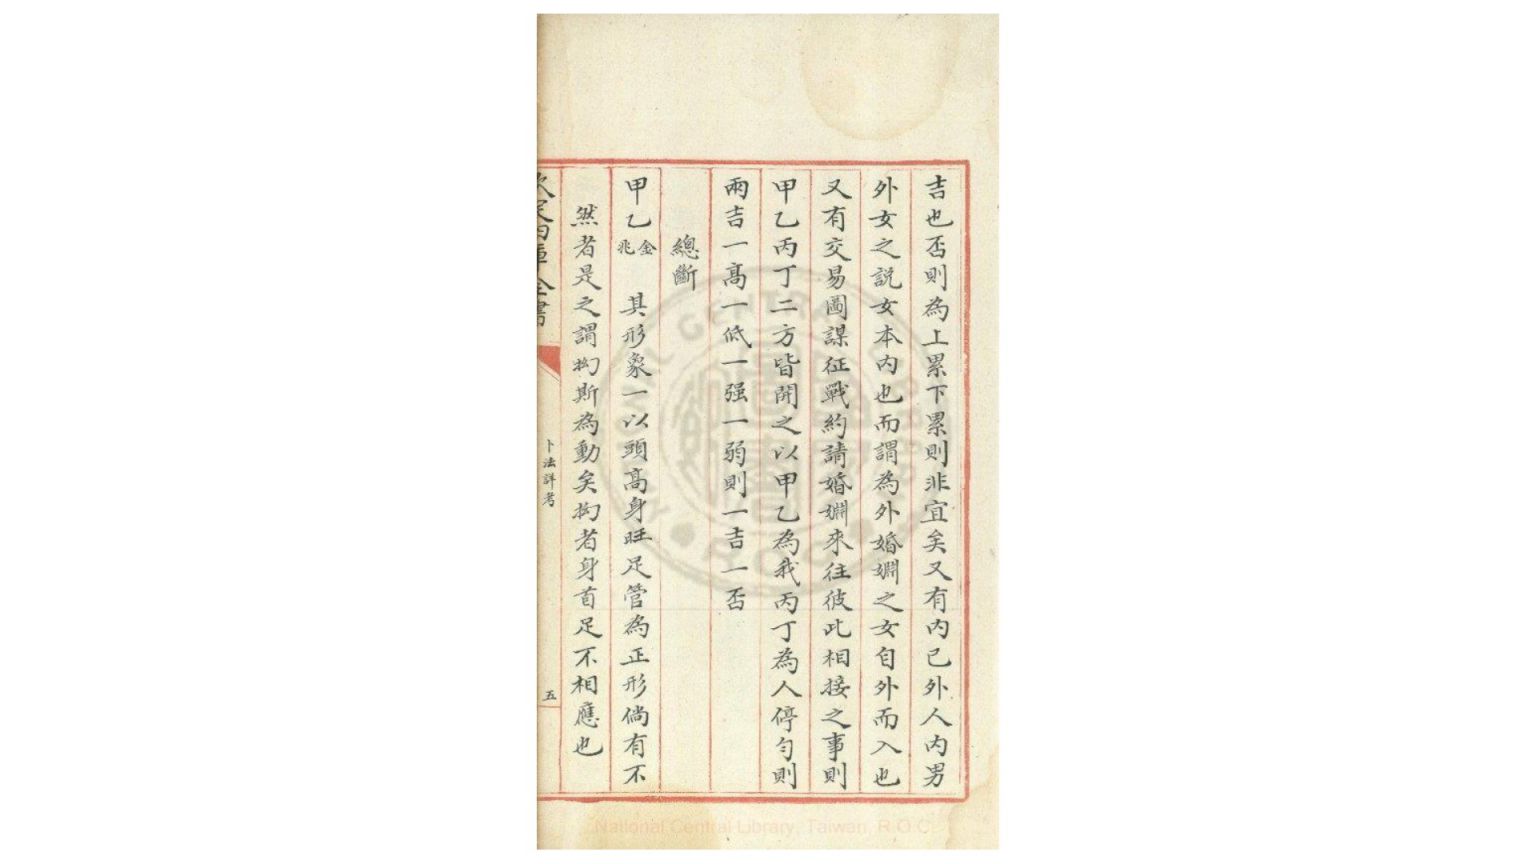 吉也否則為上累下累則非宜矣又有内已外人内男
外女之説女本内也而謂為外婚婣之女自外而入也
又有交易圖謀征戰約請婚婣來往彼此相接之事則
甲乙丙丁二方皆開之以甲乙為我丙丁為人停勻則
兩吉一高一低一强一弱則一吉一否
總斷
甲乙金兆 其形象一以頭高身旺足管為正形倘有不
然者是之謂拘斯為動矣拘者身首足不相應也
欽定四庫全書
卜法詳考
五
National Central Library, Taiwan, R.O.C